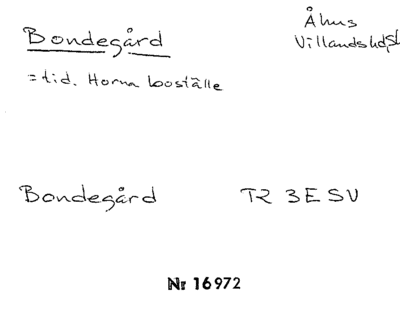 Bondegård
Åhus
Villands hd, Sk
= tid. Horna boställe
Bondegård TR 3E SV
Nr 16972